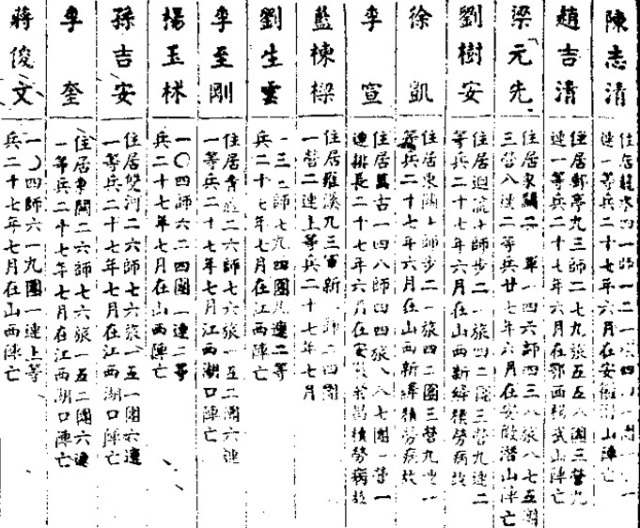 陳志清
住居 連一等兵二十七年六月在安徽潛山陣亡
趙吉清
住居郵亭九三師二七九旅五五八團三營九
連一等兵二十七年六月在鄂西 武山陣亡
梁元先
住居東關二 軍一四六師四三八旅八七五團
三營八連二等兵廿七年六月在安徽潛山陣亡
劉樹安
住居迴龍十師步二一旅四二團三營九連二
等兵二十七年六月在山西新絳積勞病故
徐凱
住居東關十師步二一旅四二團三營九連一
等兵二十七年六月在山西新絳積勞病故
李宣
住居萬古一四八師四四 旅八八七團一營一
連排長二十七年六月在安 積勞病故
藍棟樑
住居雍溪九三軍新 師二四團
一營二連上等兵二十七年七月
劉生雲
一三 師七九四團 連二等
兵二十七年七月在江西陣亡
李至剛
住居 二六師七六旅一五二團六連
一等兵二十七年七月江西湖口陣亡
楊玉林
一〇四師六二四團一連二等
兵二十七年七月在山西陣亡
孫吉安
住居雙河二六師七六旅一五一團六連
一等兵二十七年七月在江西湖口陣亡
李奎
住居東關二六師七六旅一五二團六連
一等兵二十七年七月在江西湖口陣亡
蔣俊文
一〇四師六一九團一連上等
兵二十七年七月在山西陣亡